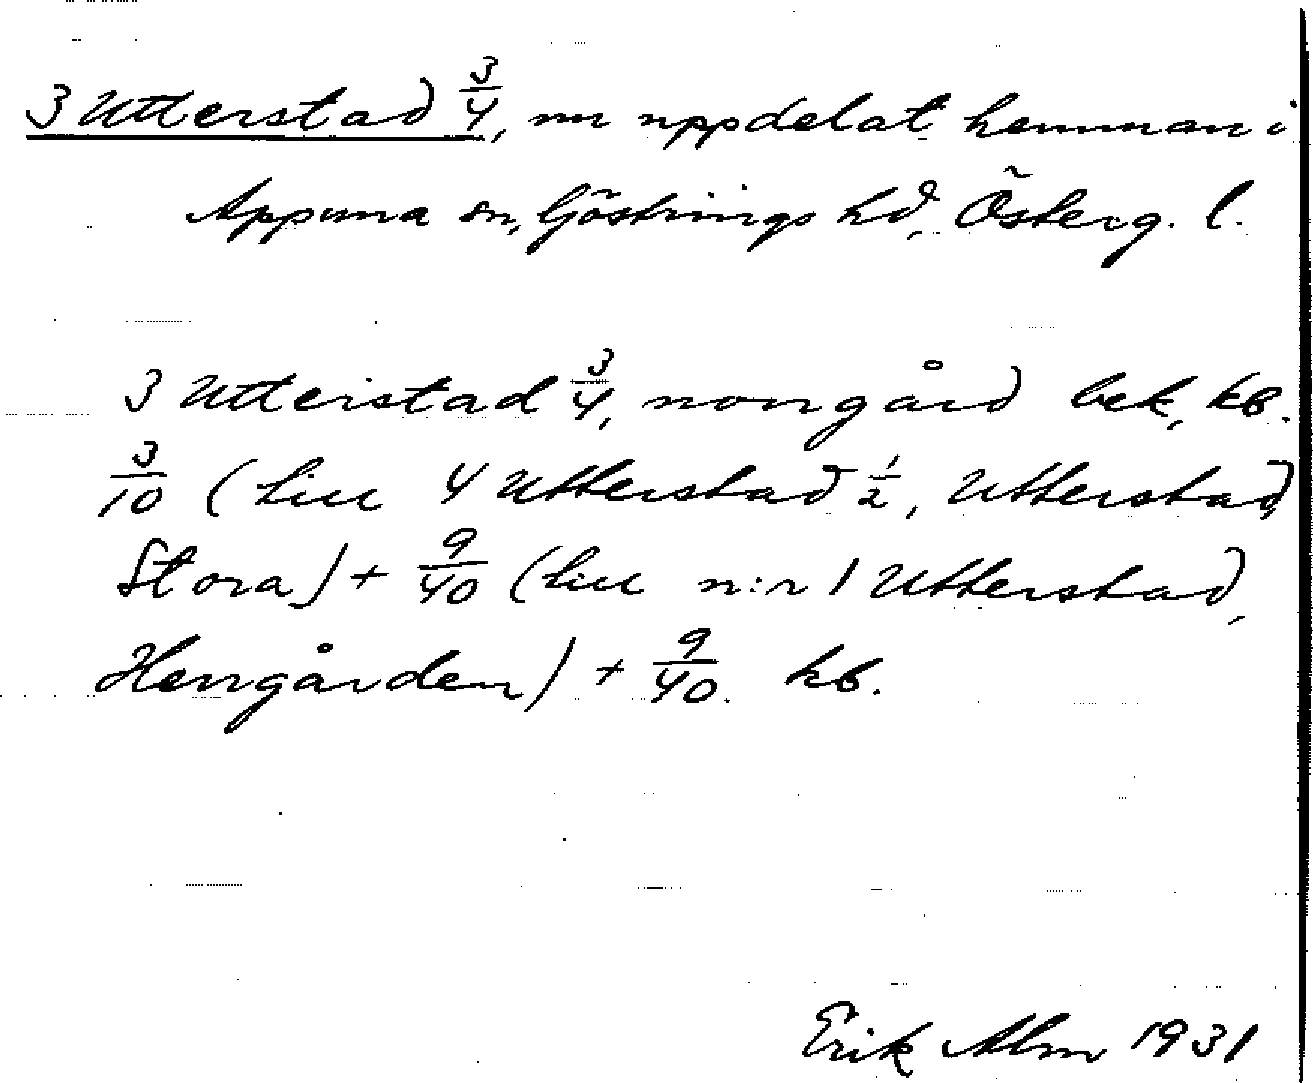 3 Utterstad 3/4, nu uppdelat hemman i
Appuna sn, Göstrings hd, Österg. l.
3 Utterstad 3/4, norrgård bek, kb.
3/10 (till 4 Utterstad 1/2, Utterstad,
Stora) + 9/40 (till n:r 1 Utterstad,
Herrgården) + 9/40. kb.
Erik Alm 1931